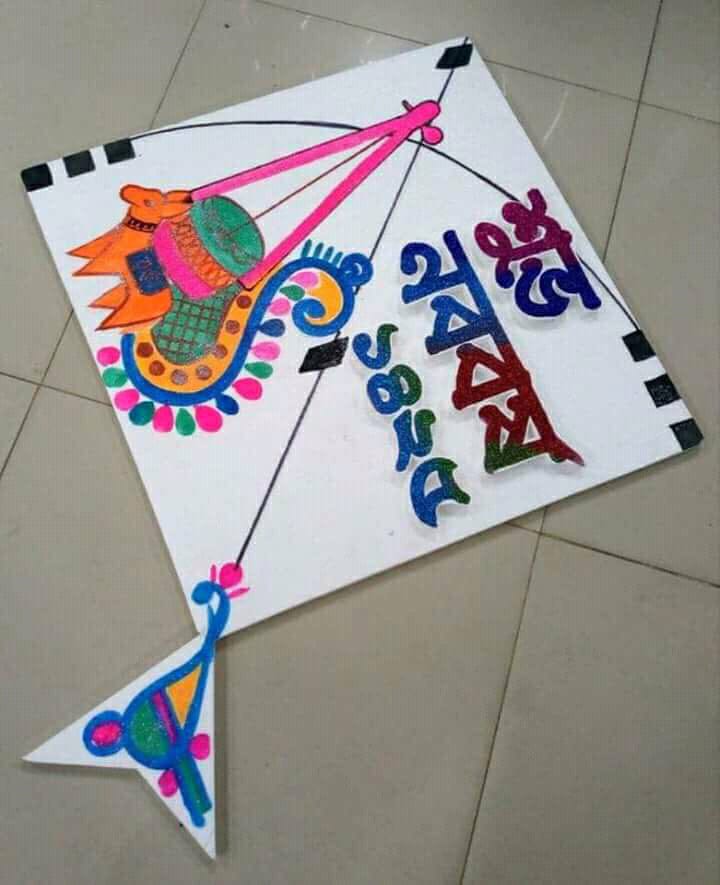 শুভ
নববর্ষ
১৪২৫